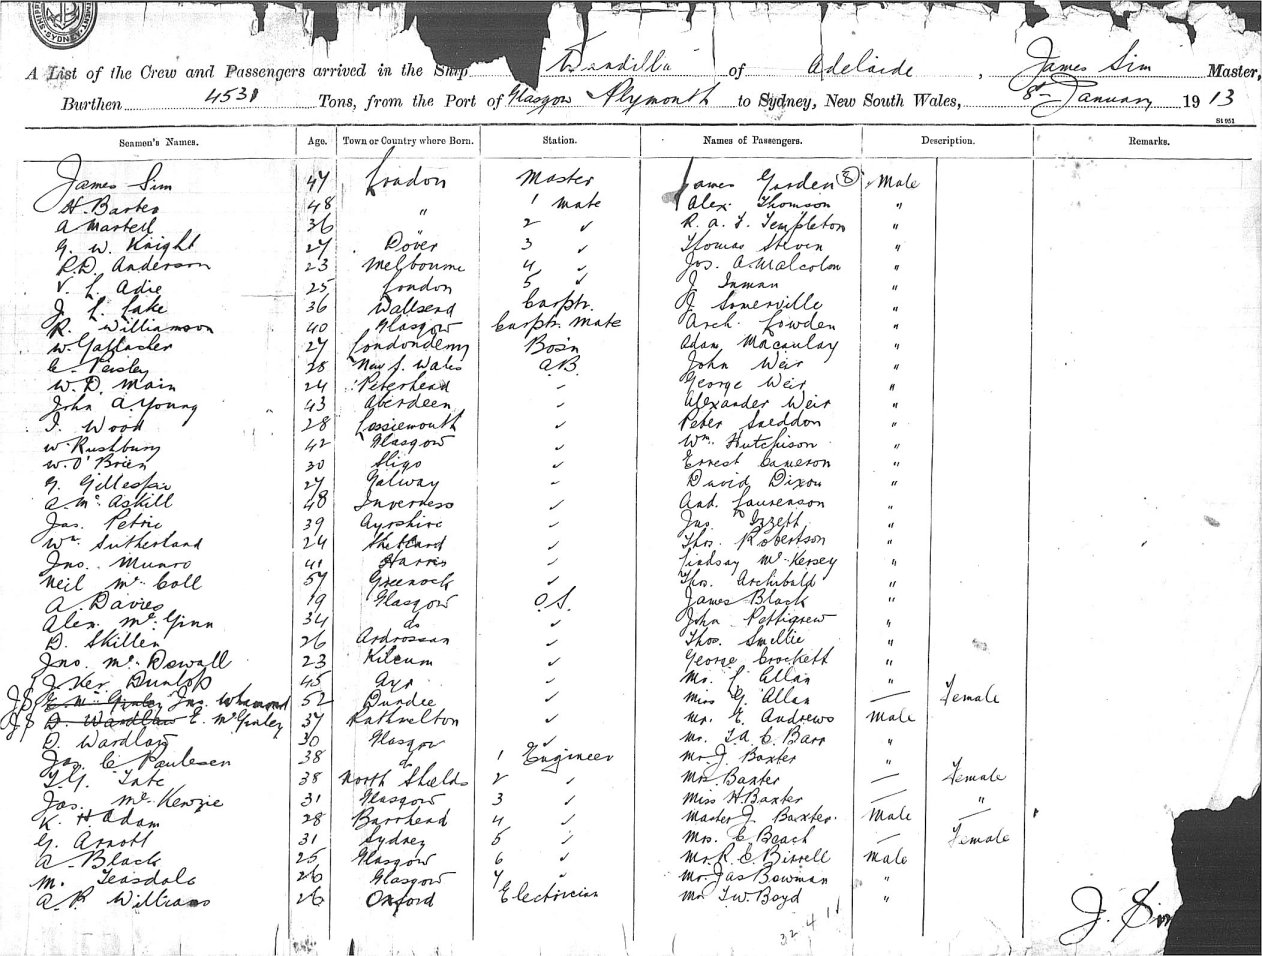 SYDNEY
A List of the Crew and Passengers arrived in the Ship Wandilla of Adelaide, James Sim Master,
Burthen 4531 Tons, from the Port of Glasgow Plymouth to Sydney, New South Wales, 8th January 1913
St 951
Seamen's Names. Age. Town or Country where Born. Station. Names of Passengers. Description. Remarks.
James Sim 47 London Master James Garden (8) Male
H. Barter 48 " 1 Mate Alex. Thomson "
A Martell 36 " 2 ✓ R. A. T. Templeton "
G. W. Knight 27 Dover 3 ✓ Thomas Steven "
R.D. Anderson 23 Melbourne 4 ✓ Jos. A Malcolm "
V. L. Adie 25 London 5 ✓ J Inman "
J. L. Lake 36 Wallsend Carptr. J Somerville "
R. Williamson 40 Glasgow Carptr. Mate Arch. Lowden "
W. Gallacher 27 Londonderry Bosn Adam Macaulay "
C. Peisley 28 New S. Wales A.B. John Weir "
W. D. Main 24 Peterhead ✓ George Weir "
John A. Young 43 Aberdeen ✓ Alexander Weir "
J. Wood 28 Lossiemouth ✓ Peter Sneddon "
W Rushbury 42 Glasgow ✓ Wm. Hutchison "
W. O'Brien 30 Sligo ✓ Ernest Cameron "
G. Gillespie 27 Galway ✓ David Dixon "
A. Mc Askill 48 Inverness ✓ And. Laurenson "
Jas. Petrie 39 Ayrshire ✓ Jno. Izzett "
Wm. Sutherland 24 Shetland ✓ Thos. Robertson "
Jno. Munro 41 Harris ✓ Lindsay Mc Kersey "
Neil Mc Coll 57 Greenock ✓ Thos. Archibald "
A. Davies 19 Glasgow O.S. James Black "
Alex. Mc Ginn 34 do ✓ John Pettigrew "
D. Skillen 26 Ardrossan ✓ Thos. Smellie "
Jno. Mc Dowall 23 ✓ George Crockett "
J. Ker Dunlop 45 Ayr ✓ Mr. L Allan "
JS E. Mc Ginley Jno. Whamond 52 Dundee ✓ Miss G. Allan — Female
JS D. Wardlaw E. McGinley 37 Rathmelton ✓ Mr. E. Andrews Male
D. Wardlaw 30 Glasgow ✓ Mr. T.A. C. Barr "
Jas. C Paulesen 38 do 1 Engineer Mr. J. Baxter "
T. G. Tate 38 North Shields 2 ✓ Mrs Baxter — Female
Jas. Mc Kenzie 31 Glasgow 3 ✓ Miss H Baxter — "
K. H Adam 28 Barrhead 4 ✓ Master J. Baxter. Male —
G. Arnott 31 Sydney 5 ✓ Mrs. C Beach — Female
A. Black 25 Glasgow 6 ✓ Mr R. C Birrell Male
M. Teasdale 26 Glasgow 7 Mr Jas Bowman "
A. R Williams 26 Oxford Electrician Mr T.W. Boyd "
J. Sim
32 4 11